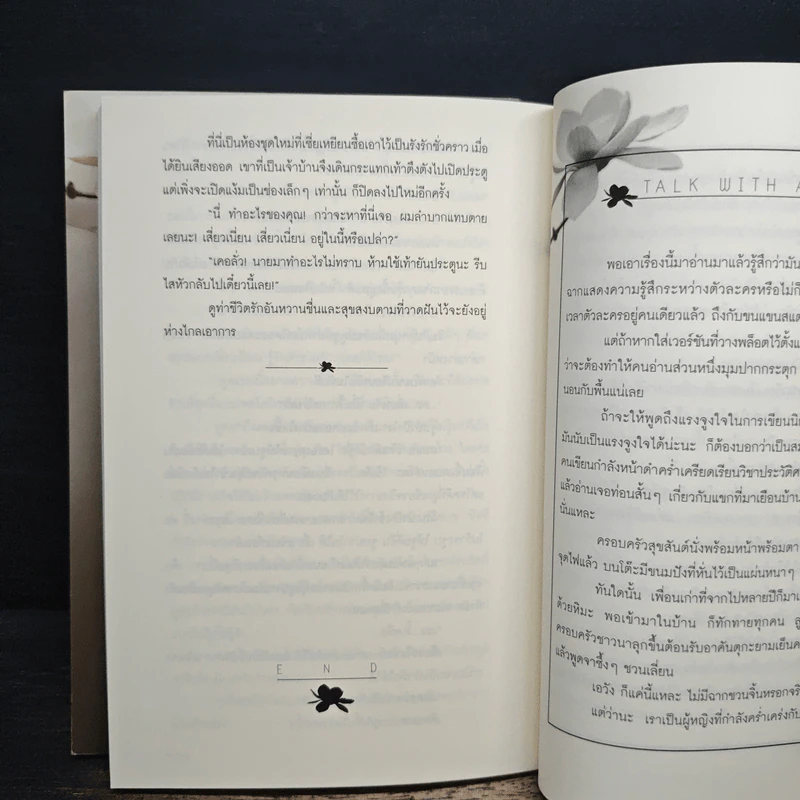 ที่นี่เป็นห้องชุดใหม่ที่เซี่ยเหยียนซื้อเอาไว้เป็นรังรักชั่วคราว เมื่อ
ได้ยินเสียงออด เขาที่เป็นเจ้าบ้านจึงเดินกระแทกเท้าตึงตังไปเปิดประตู
แต่เพิ่งจะเปิดแง้มเป็นช่องเล็กๆ เท่านั้น ก็ปิดลงไปใหม่อีกครั้ง
“นี่ ทำอะไรของคุณ! กว่าจะหาที่นี่เจอ ผมลำบากแทบตาย
เลยนะ! เสี่ยวเนี่ยน เสี่ยวเนี่ยน อยู่ในนี้หรือเปล่า?”
“เคอลั่ว! นายมาทำอะไรไม่ทราบ ห้ามใช้เท้ายันประตูนะ รีบ
ไสหัวกลับไปเดี๋ยวนี้เลย!”
ดูท่าชีวิตรักอันหวานชื่นและสุขสงบตามที่วาดฝันไว้จะยังอยู่
ห่างไกลเอาการ
END
TALK WITH A
พอเอาเรื่องนี้มาอ่านมาแล้วรู้สึกว่ามัน
ฉากแสดงความรู้สึกระหว่างตัวละครหรือไม่ก็
เวลาตัวละครอยู่คนเดียวแล้ว ถึงกับขนแขนสแต
แต่ถ้าหากใส่เวอร์ชันที่วางพล็อตไว้ตั้งแ
ว่าจะต้องทำให้คนอ่านส่วนหนึ่งมุมปากกระตุก
นอนกับพื้นแน่เลย
ถ้าจะให้พูดถึงแรงจูงใจในการเขียนนิ
มันนับเป็นแรงจูงใจได้น่ะนะ ก็ต้องบอกว่าเป็นสม
คนเขียนกำลังหน้าดำคร่ำเครียดเรียนวิชาประวัติศ
แล้วอ่านเจอท่อนสั้นๆ เกี่ยวกับแขกที่มาเยือนบ้าน
นั่นแหละ
ครอบครัวสุขสันต์นั่งพร้อมหน้าพร้อมตา
จุดไฟแล้ว บนโต๊ะมีขนมปังที่หั่นไว้เป็นแผ่นหนาๆ
ทันใดนั้น เพื่อนเก่าที่จากไปหลายปีก็มาเ
ด้วยหิมะ พอเข้ามาในบ้าน ก็ทักทายทุกคน ลู
ครอบครัวชาวนาลุกขึ้นต้อนรับอาคันตุกะยามเย็นค
แล้วพูดจาซึ้งๆ ชวนเลี่ยน
เอวัง ก็แค่นี้แหละ ไม่มีฉากชวนจิ้นหรอกจริ
แต่ว่านะ เราเป็นผู้หญิงที่กำลังคร่ำเคร่งกับ